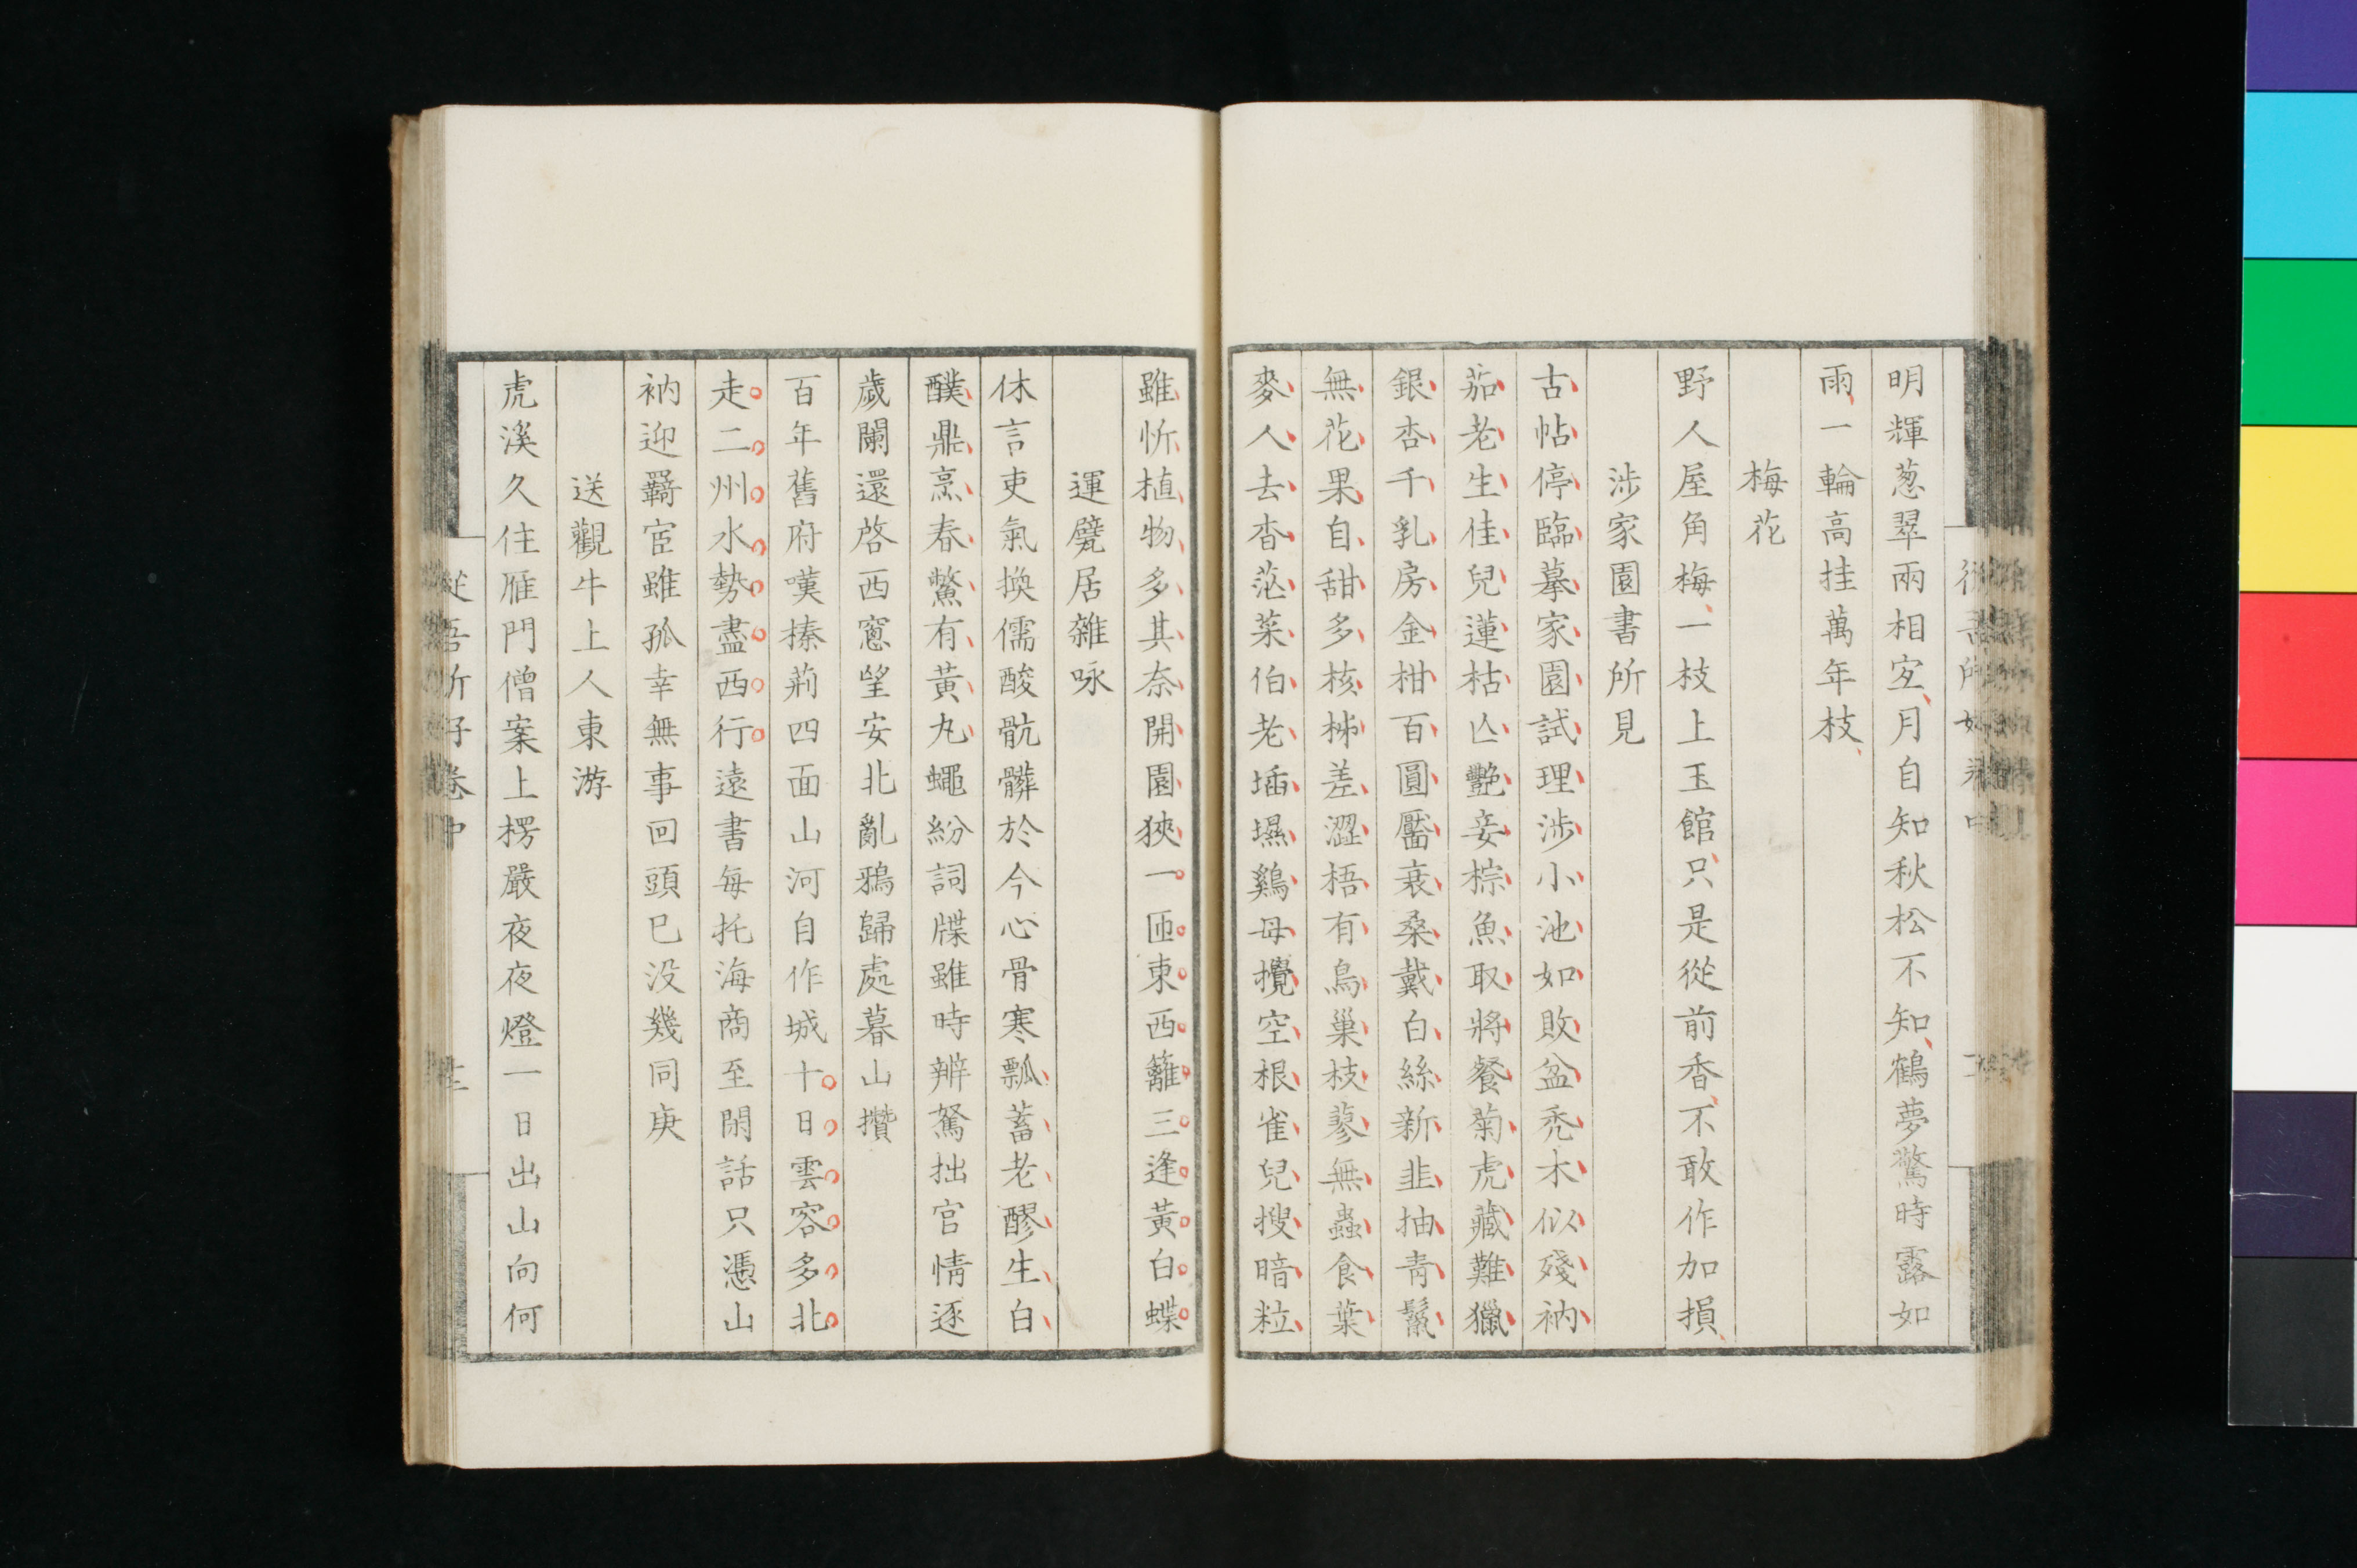 明輝葱翠兩相宐月自知秋松不知鶴夢驚時露如
雨一輪高挂萬年枝
梅花
野人屋角梅一枝上玉館只是從前香不敢作加損
涉家園書所見
古帖停臨摹家園試理涉小池如敗盆禿木似殘衲
茄老生佳兒蓮枯亾艷妾棕魚取將餐菊虎藏難獵
銀杏千乳房金柑百圓靨衰桑戴白絲新韭抽青鬣
無花果自甜多核柹差澀梧有鳥巢枝蓼無蟲食葉
麥人去杳茫菜伯老壖鷄母攪空根雀兒搜暗粒
雖忻植物多其奈開園狹一匝東西籬三逢黃白蝶
運甓居雜咏
休言吏氣換儒酸骯髒於今心骨寒瓢蓄老醪生白
醭鼎烹春鱉有黃丸蠅紛詞牒雖時辦駑拙官情逐
歲闌還啓西窻望安北亂鴉歸處暮山攢
百年舊府嘆榛荊四面山河自作城十日雲容多北
走二州水勢盡西行遠書每托海商至閑話只憑山
衲迎羇宦雖孤幸無事回頭已没幾同庚
送觀牛上人東游
虎溪久住雁門僧案上楞嚴夜夜燈一日出山向何
從吾所好卷中